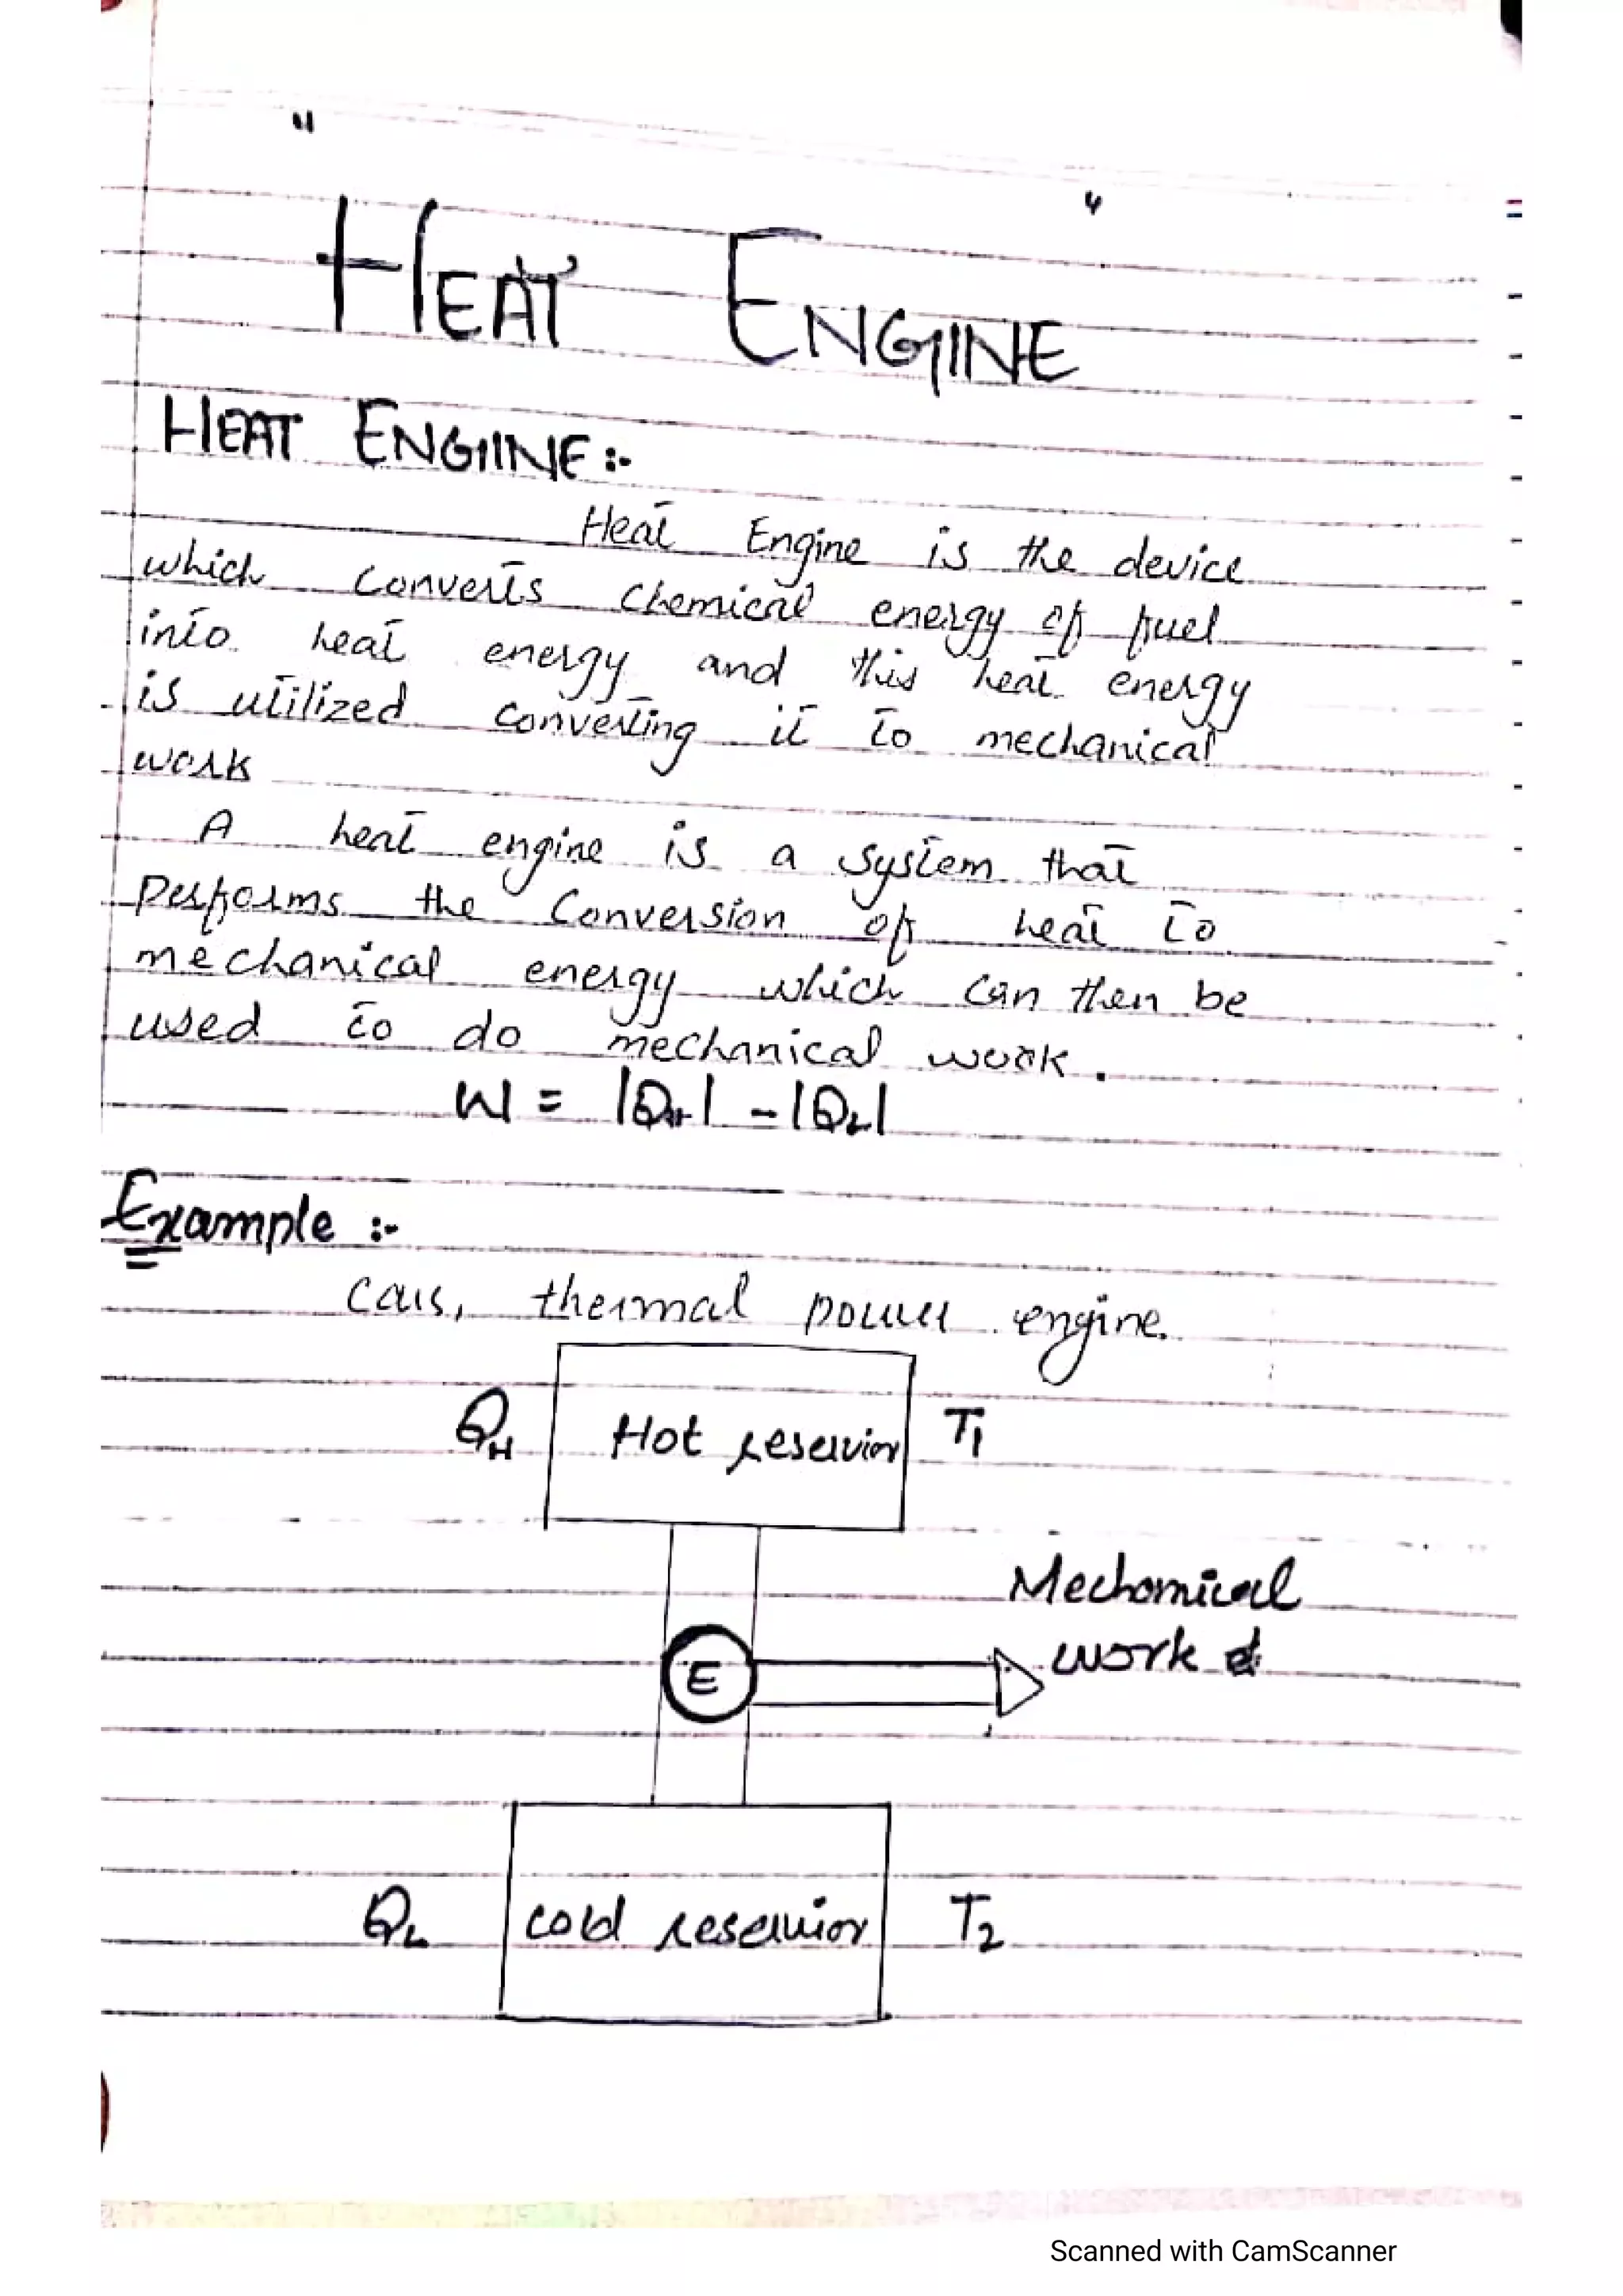 "
"
HEAT ENGINE
HEAT ENGINE :-
Heat Engine is the device
which converts Chemical energy of fuel
into heat energy and this heat energy
is utilized converting it to mechanical
work
A heat engine is a system that
performs the Conversion of heat to
mechanical energy which can then be
used to do mechanical work.
W = |QH| - |QL|
Example :-
Cars, thermal power engine.
QH Hot reservior T1
Mechanical
E work
QL cold reservior T2
Scanned with CamScanner